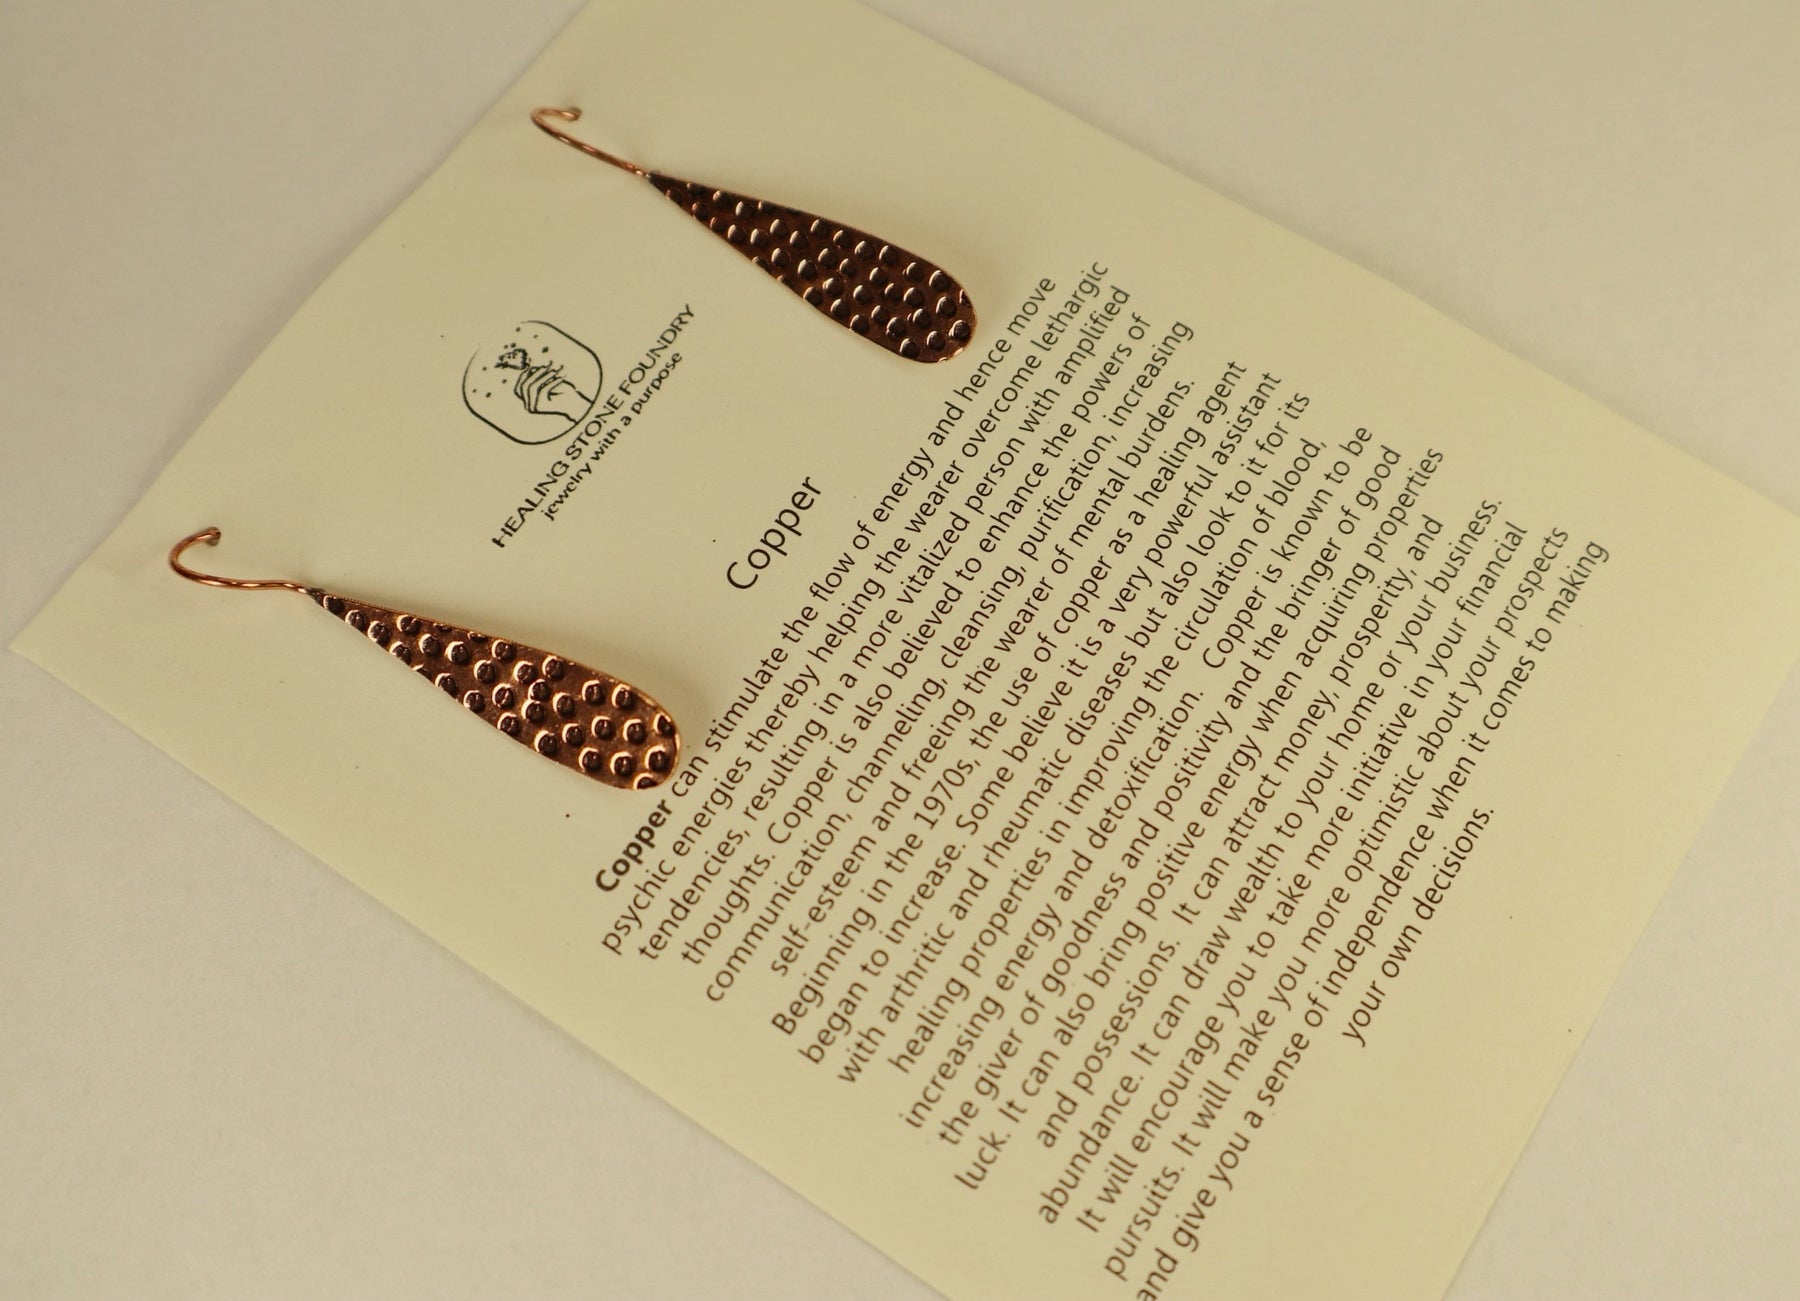 HEALING STONE FOUNDRY
jewelry with a purpose
Copper
Copper can stimulate the flow of energy and hence move
psychic energies thereby helping the wearer overcome lethargic
tendencies, resulting in a more vitalized person with amplified
thoughts. Copper is also believed to enhance the powers of
communication, channeling, cleansing, purification, increasing
self-esteem and freeing the wearer of mental burdens.
Beginning in the 1970s, the use of copper as a healing agent
began to increase. Some believe it is a very powerful assistant
with arthritic and rheumatic diseases but also look to it for its
healing properties in improving the circulation of blood,
increasing energy and detoxification. Copper is known to be
the giver of goodness and positivity and the bringer of good
luck. It can also bring positive energy when acquiring properties
and possessions. It can attract money, prosperity, and
abundance. It can draw wealth to your home or your business.
It will encourage you to take more initiative in your financial
pursuits. It will make you more optimistic about your prospects
and give you a sense of independence when it comes to making
your own decisions.